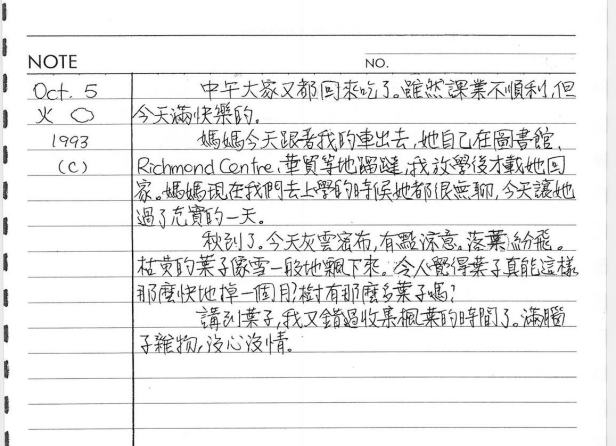 NOTE
NO.
Oct. 5
火
1993
(C)
中午大家又都回來吃了。雖然課業不順利,但
今天滿快樂的。
媽媽今天跟著我的車出去,她自己在圖書館、
Richmond Centre、華貿等地蹓躂,我放學後才載她回
家。媽媽現在我們去上學的時候她都很無聊,今天讓她
過了充實的一天。
秋到了。今天灰雲密布,有點涼意。落葉紛飛。
枯黃的葉子像雪一般地飄下來。令人覺得葉子真能這樣
那麼快地掉一個月?樹有那麼多葉子嗎?
講到葉子,我又錯過收集楓葉的時間了。滿腦
子雜物,沒心沒情。